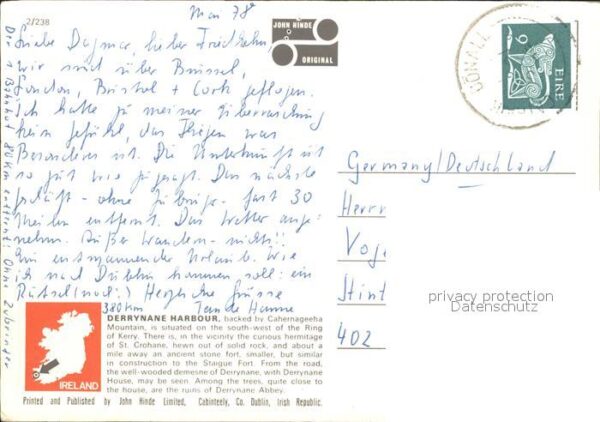 Mai 78
2/238
JOHN HINDE
ORIGINAL
Liebe Dagmar, lieber
wir sind über Brüssel,
London, Bristol + Cork geflogen.
Ich hatte zu meiner Überraschung
kein Gefühl, das Fliegen was
Besonderes ist. Die Unterkunft ist
so gut wie zugesagt. Das nächste
Geschäft - ohne - fast 30
Meilen entfernt. Das Wetter ange-
nehm. Außer Wandern - nichts!!
Ein entspannender Urlaub. Wie
ich nach Dublin kommen soll: ein
Rätsel (noch) Herzliche Grüsse
380 km Tante Hanne
Der 1 Bahnhof 80 Km entfernt: Ohne Zubringer
EIRE
9
Germany/Deutschland
Herrn
Voge
Stint
402
privacy protection
Datenschutz
IRELAND
DERRYNANE HARBOUR, backed by Cahernageeha
Mountain, is situated on the south-west of the Ring
of Kerry. There is, in the vicinity the curious hermitage
of St. Crohane, hewn out of solid rock, and about a
mile away an ancient stone fort, smaller, but similar
in construction to the Staigue Fort. From the road,
the well-wooded demesne of Derrynane, with Derrynane
House, may be seen. Among the trees, quite close to
the house, are the ruins of Derrynane Abbey.
Printed and Published by John Hinde Limited, Cabinteely, Co. Dublin, Irish Republic.